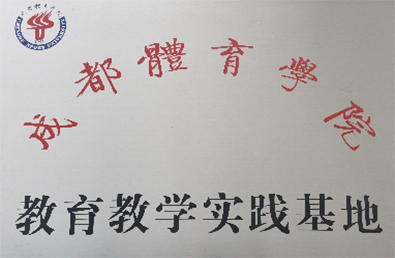 成都體育學院
教育教学实践基地